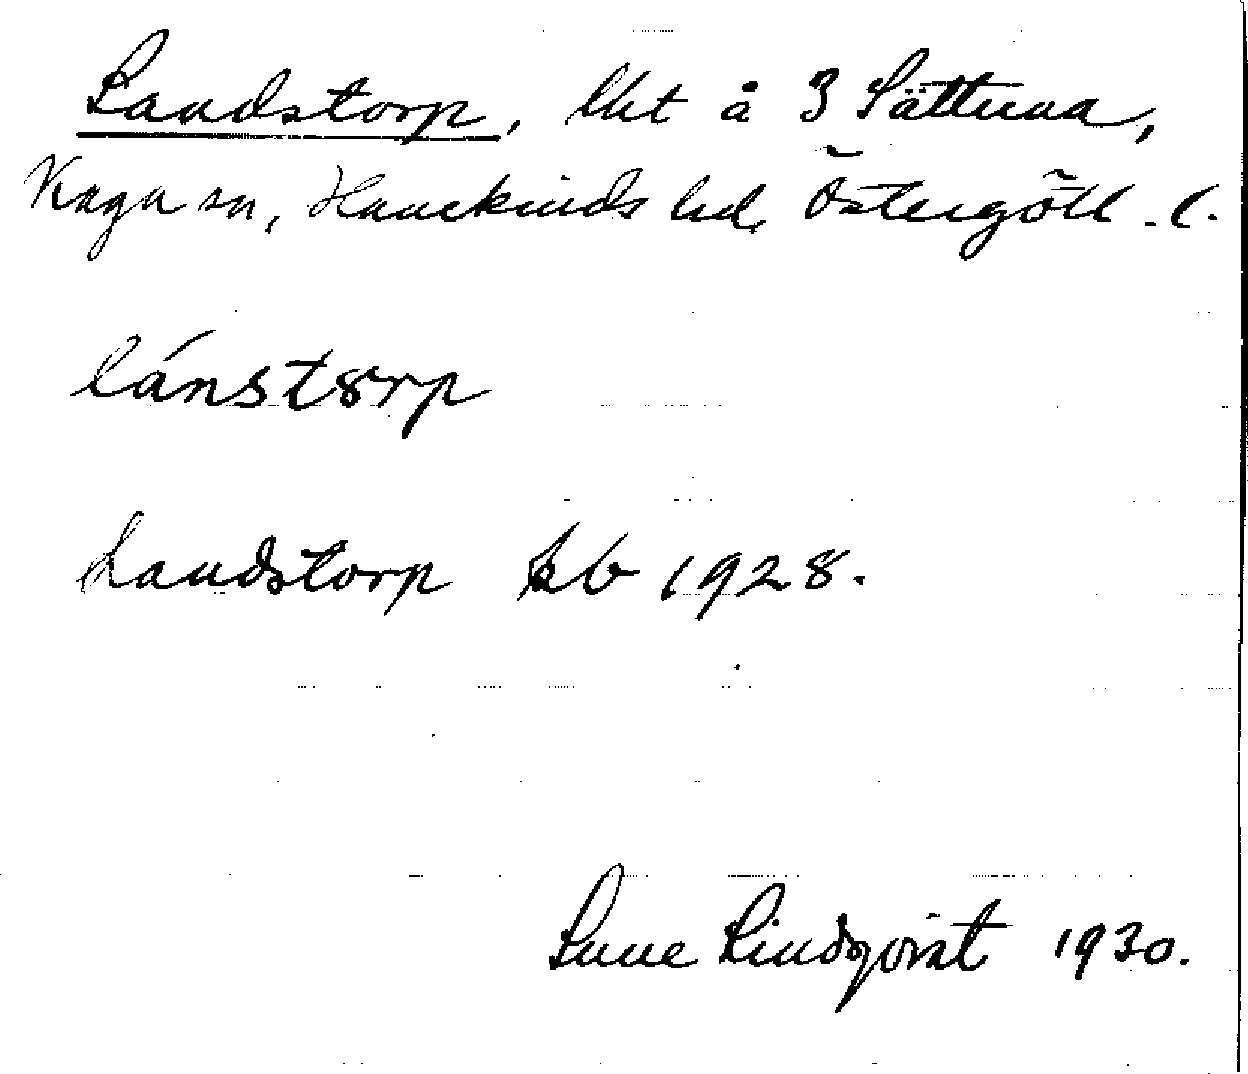 Landstorp, lht å 3 Sättuna,
Kaga sn, Hanekinds hd, Östergötl. l.
lánstorp
Landstorp kb 1928.
Sune Lindqvist 1930.